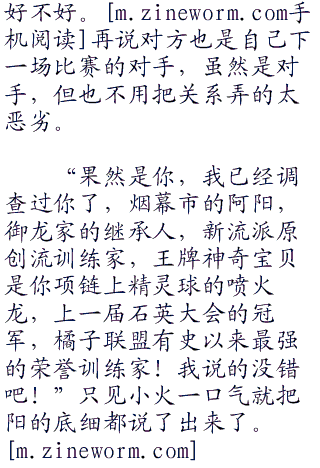 好不好。[m.zineworm.com手
机阅读]再说对方也是自己下
一场比赛的对手，虽然是对
手，但也不用把关系弄的太
恶劣。
“果然是你，我已经调
查过你了，烟幕市的阿阳，
御龙家的继承人，新流派原
创流训练家，王牌神奇宝贝
是你项链上精灵球的喷火
龙，上一届石英大会的冠
军，橘子联盟有史以来最强
的荣誉训练家！我说的没错
吧！”只见小火一口气就把
阳的底细都说了出来了。
[m.zineworm.com]